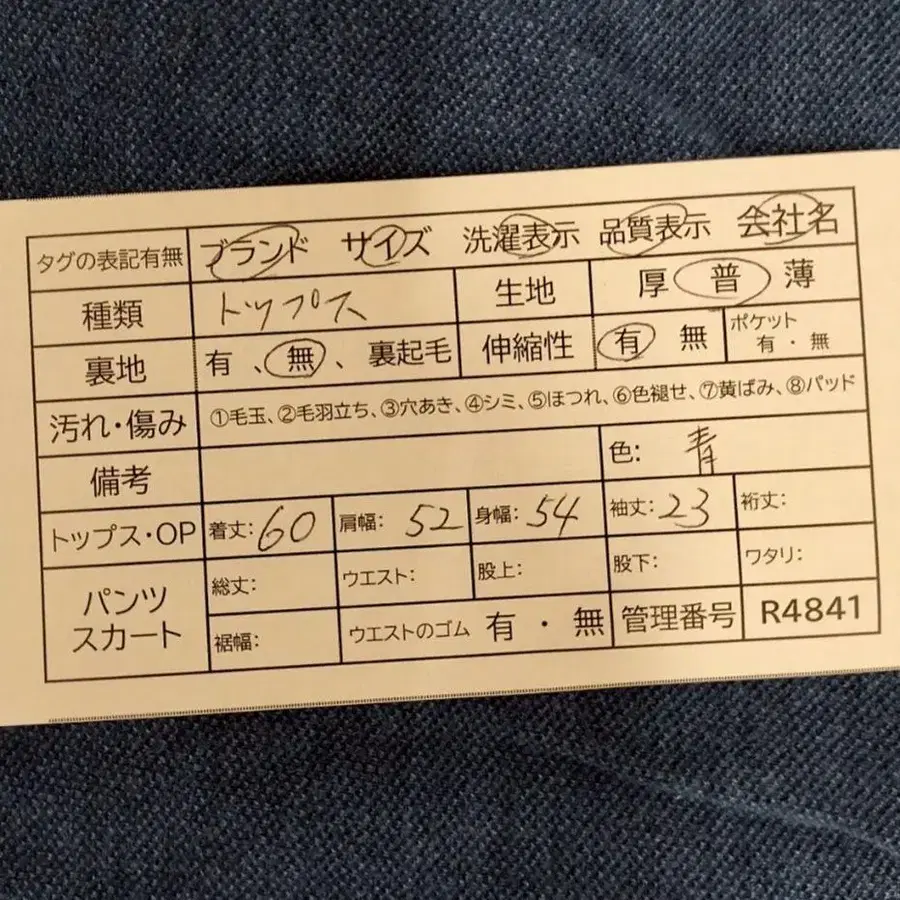 タグの表記有無 ブランド サイズ 洗濯表示 品質表示 会社名
種類 トップス 生地 厚 普 薄
裏地 有、無、裏起毛 伸縮性 有 無 ポケット 有・無
汚れ・傷み ①毛玉、②毛羽立ち、③穴あき、④シミ、⑤ほつれ、⑥色褪せ、⑦黄ばみ、⑧パッド
備考 色: 青
トップス・OP 着丈: 60 肩幅: 52 身幅: 54 袖丈: 23 裄丈:
パンツ スカート 総丈: ウエスト: 股上: 股下: ワタリ:
裾幅: ウエストのゴム 有・無 管理番号 R4841